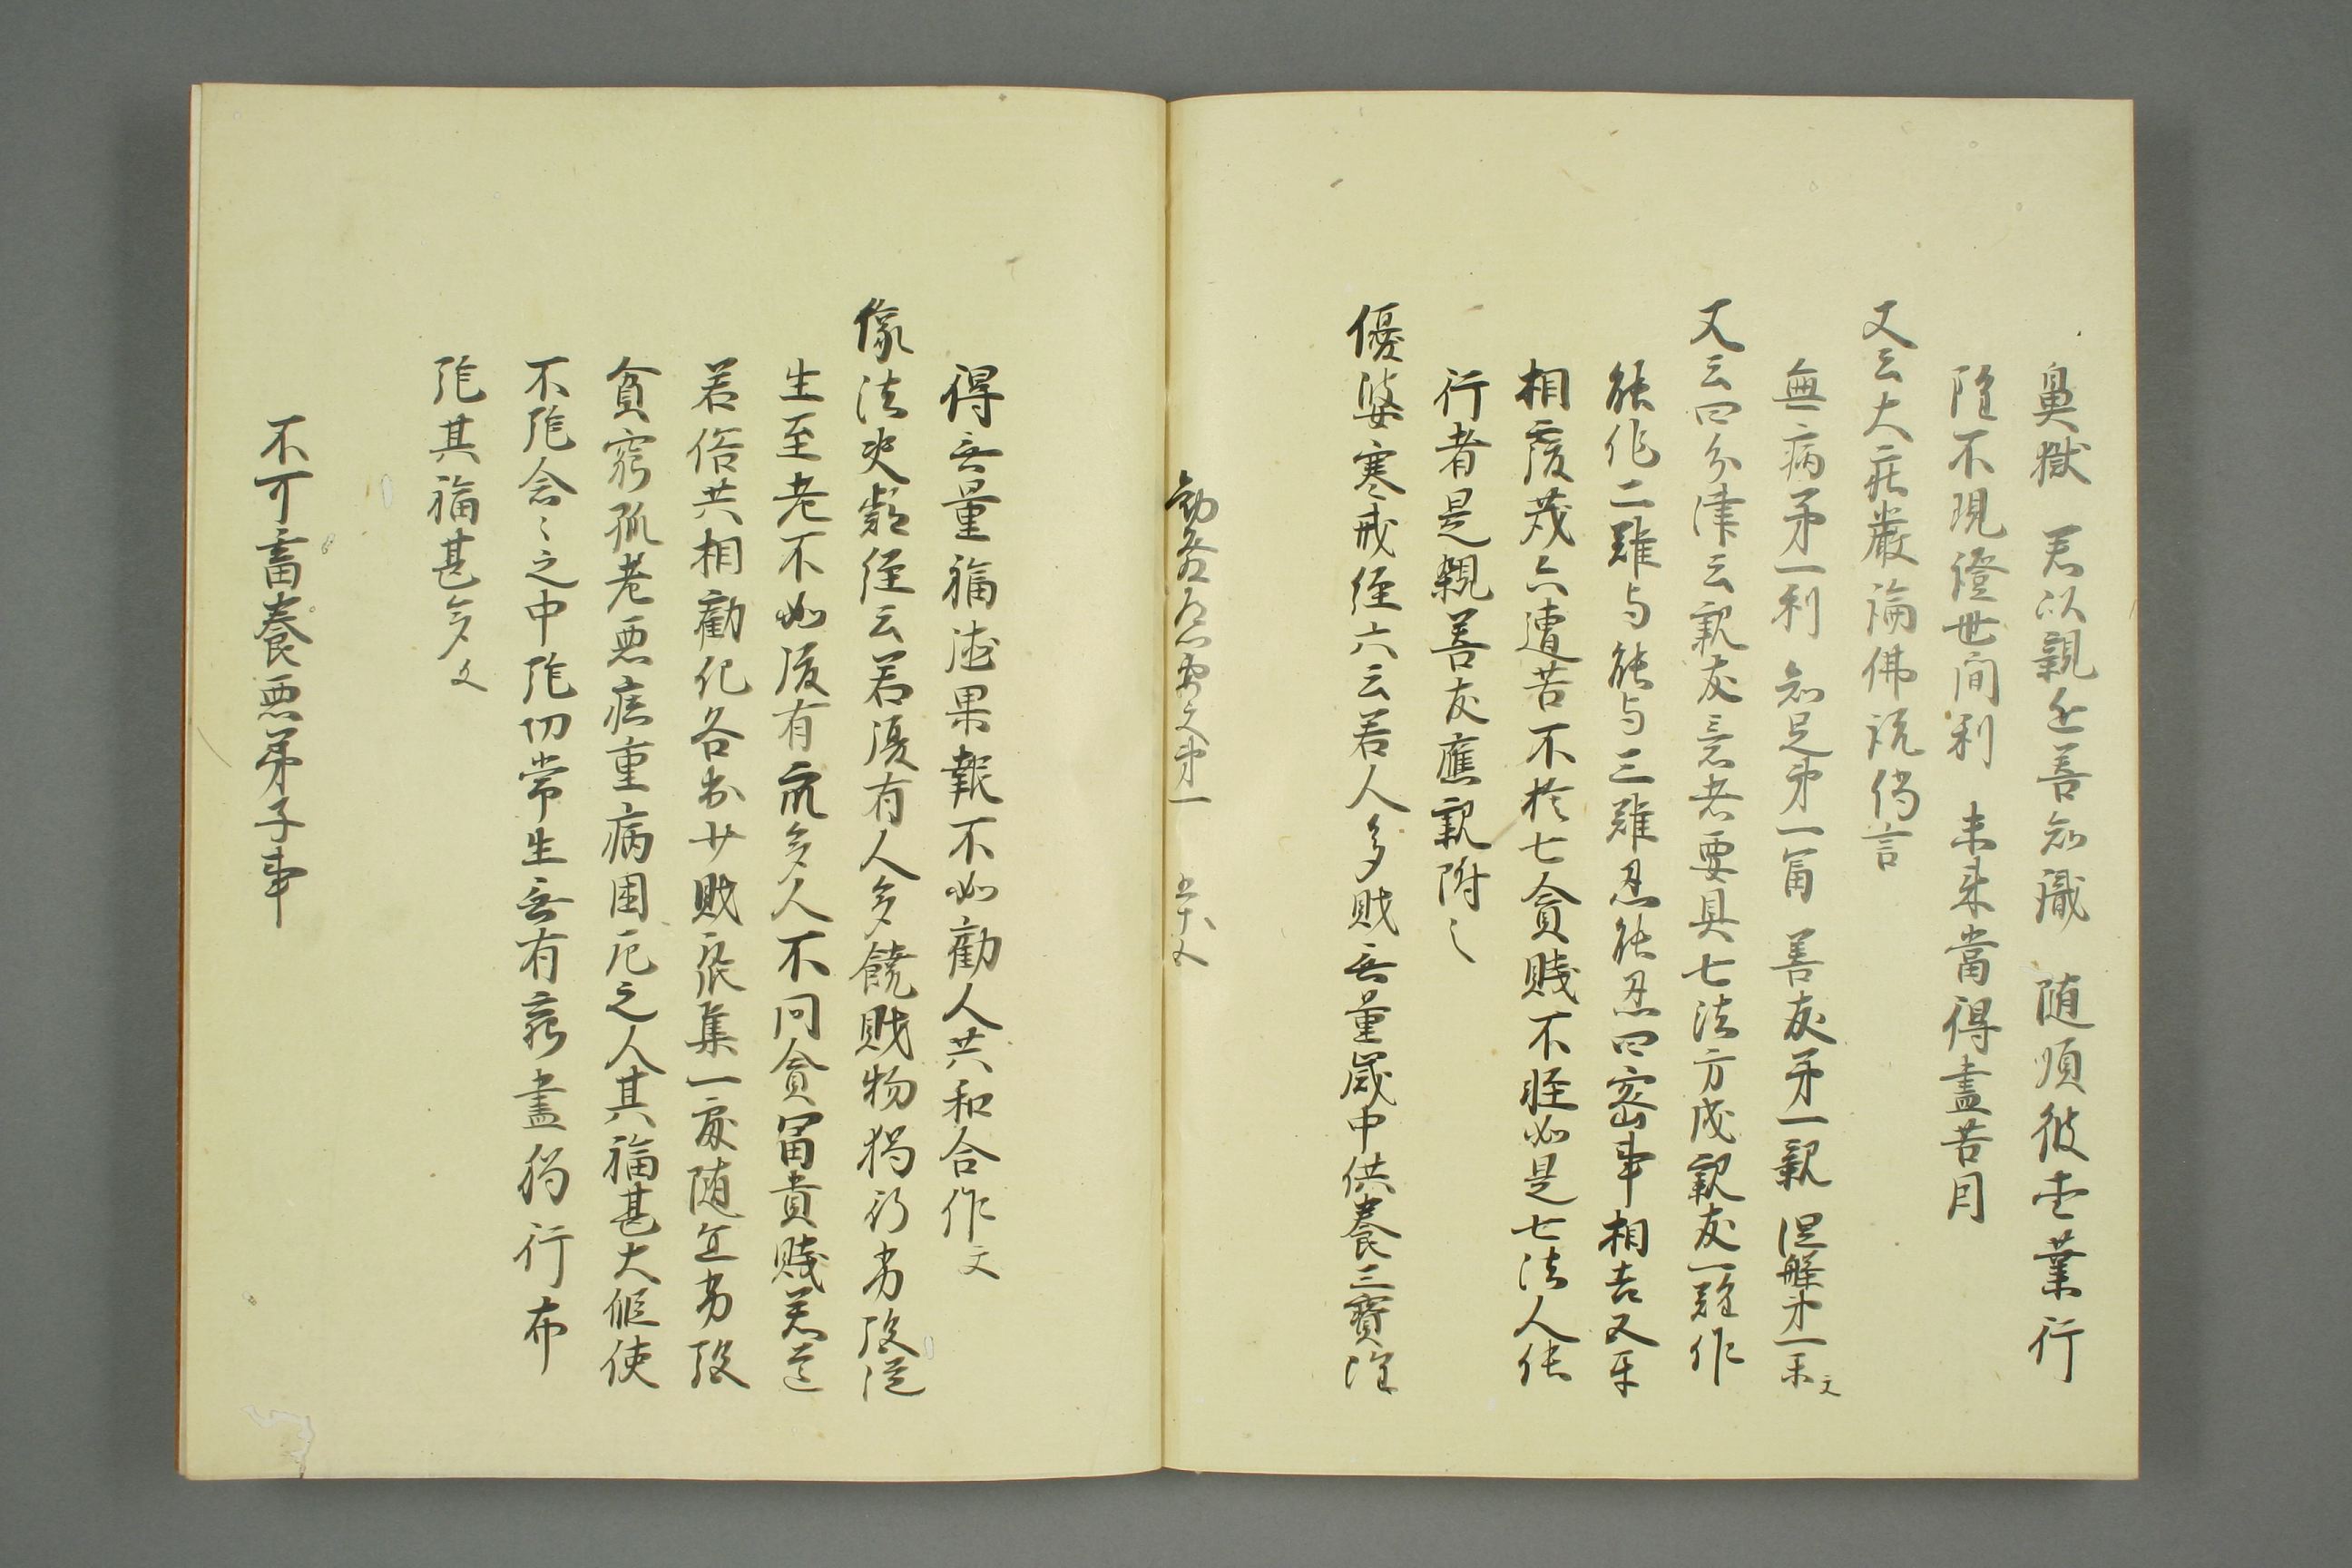 鼻獄　若以親近善知識　随順彼之業行
雖不現證世間利　未来當得盡苦因
又云大莊嚴論佛説偈言
無病第一利　知足第一富　善友第一親　涅槃第一樂文
又云四分律云親友意者要具七法方成親友一難作
能作二難与能与三難忍能忍四密事相告又互
相覆蔵六遭苦不捨七貧賤不軽如是七法人能
行者是親善友應親附之
優婆塞戒経六云若人多財無量歳中供養三寶雖
勧善
文第一
得無量福徳果報不如勧人共和合作文
像法決疑経云若復有人多饒財物獨行布施従
生至老不如復有衆多人不同貧富貴賤若道
若俗共相勧化各出少財聚集一處随宜布施
貧窮孤老悪疾重病困厄之人其福甚大假使
不施念々之中施功常生無有窮盡獨行布
施其福甚少文
不可畜養悪弟子事